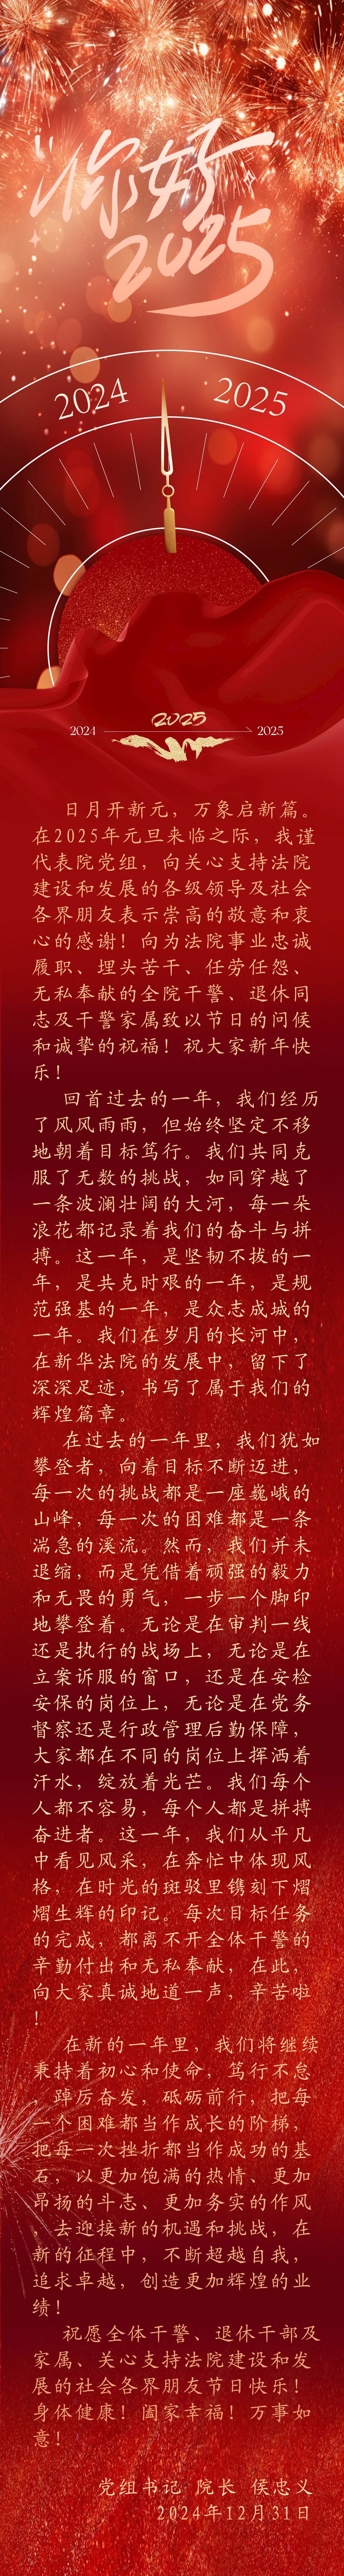 你好
2025
2024
2025
2025
2024
2025
日月开新元，万象启新篇。
在2025年元旦来临之际，我谨
代表院党组，向关心支持法院
建设和发展的各级领导及社会
各界朋友表示崇高的敬意和衷
心的感谢！向为法院事业忠诚
履职、埋头苦干、任劳任怨、
无私奉献的全院干警、退休同
志及干警家属致以节日的问候
和诚挚的祝福！祝大家新年快
乐！
回首过去的一年，我们经历
了风风雨雨，但始终坚定不移
地朝着目标笃行。我们共同克
服了无数的挑战，如同穿越了
一条波澜壮阔的大河，每一朵
浪花都记录着我们的奋斗与拼
搏。这一年，是坚韧不拔的一
年，是共克时艰的一年，是规
范强基的一年，是众志成城的
一年。我们在岁月的长河中，
在新华法院的发展中，留下了
深深足迹，书写了属于我们的
辉煌篇章。
在过去的一年里，我们犹如
攀登者，向着目标不断迈进，
每一次的挑战都是一座巍峨的
山峰，每一次的困难都是一条
湍急的溪流。然而，我们并未
退缩，而是凭借着顽强的毅力
和无畏的勇气，一步一个脚印
地攀登着。无论是在审判一线
还是执行的战场上，无论是在
立案诉服的窗口，还是在安检
安保的岗位上，无论是在党务
督察还是行政管理后勤保障，
大家都在不同的岗位上挥洒着
汗水，绽放着光芒。我们每个
人都不容易，每个人都是拼搏
奋进者。这一年，我们从平凡
中看见风采，在奔忙中体现风
格，在时光的斑驳里镌刻下熠
熠生辉的印记。每次目标任务
的完成，都离不开全体干警的
辛勤付出和无私奉献，在此，
向大家真诚地道一声，辛苦啦
！
在新的一年里，我们将继续
秉持着初心和使命，笃行不怠
，踔厉奋发，砥砺前行，把每
一个困难都当作成长的阶梯，
把每一次挫折都当作成功的基
石，以更加饱满的热情、更加
昂扬的斗志、更加务实的作风
，去迎接新的机遇和挑战，在
新的征程中，不断超越自我，
追求卓越，创造更加辉煌的业
绩！
祝愿全体干警、退休干部及
家属、关心支持法院建设和发
展的社会各界朋友节日快乐！
身体健康！阖家幸福！万事如
意！
党组书记 院长 侯忠义
2024年12月31日